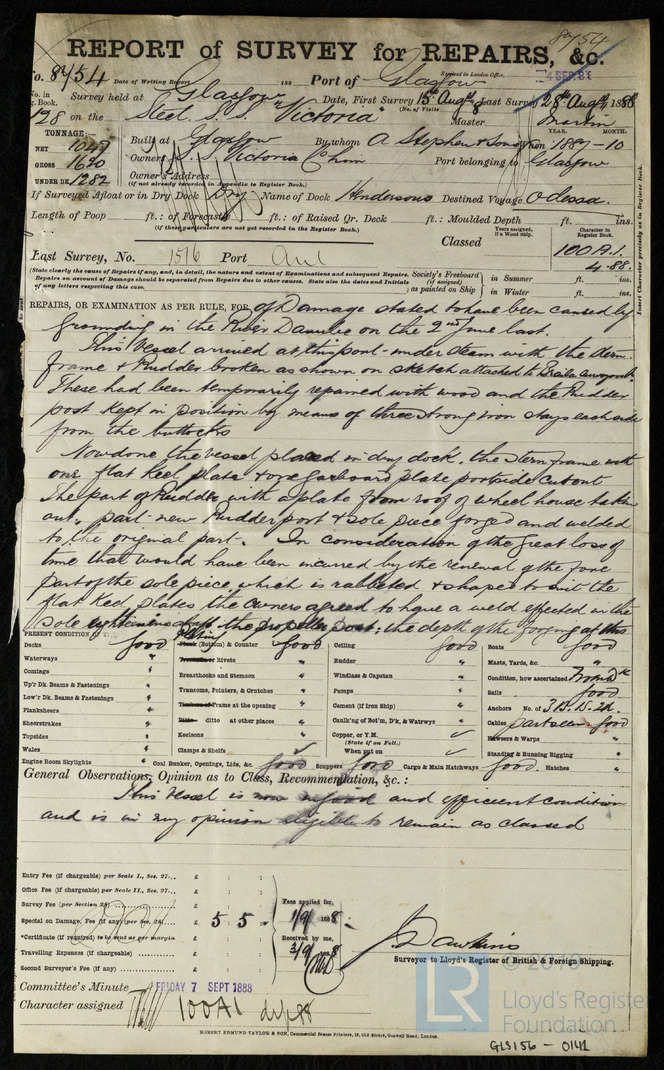 8454
REPORT of SURVEY for REPAIRS, &c.
No. 8454 Date of Writing Report 188 Port of Glasgow Received in London Office,
4 SEP. 88
No. in Reg. Book. Survey held at Glasgow Date, First Survey 15th Aug Last Survey 28th Aug 1888
(No. of Visits
128 on the Steel S.S. "Victoria" Master Martin
TONNAGE:— YEAR. MONTH.
NET 1047 Built at Glasgow By whom A Stephen & Sons When 1887-10
GROSS 1630 Owners S.S. Victoria Co Port belonging to Glasgow
UNDER DK 1282 Owner's Address
(if not already recorded in Appendix to Register Book.)
If Surveyed Afloat or in Dry Dock Dry Name of Dock Hendersons Destined Voyage Odessa.
Length of Poop ft.: of Forecastle ft.: of Raised Qr. Deck ft.: Moulded Depth ft. ins.
(if these particulars are not yet recorded in the Register Book.)
Years assigned, if a Wood Ship.
Character in Register Book.
Classed 100A.1.
4.88.
Last Survey, No. 1516 Port
(State clearly the cause of Repairs if any, and, in detail, the nature and extent of Examinations and subsequent Repairs. Repairs on account of Damage should be separated from Repairs due to other causes. State also the dates and Initials of any letters respecting this case.
Society's Freeboard (if assigned) as painted on Ship
in Summer ft. ins.
in Winter ft. ins.
Insert Character precisely as in Register Book.
REPAIRS, OR EXAMINATION AS PER RULE, FOR Damage stated to have been caused by
grounding in the River Danube on the 2nd June last.
This Vessel arrived at this port under steam with the stern
frame & Rudder broken as shown on sketch attached to Braila Surveyors
These had been temporarily repaired with wood and the Rudder
post kept in position by means of three strong iron stays each side
from the buttocks
Now done the vessel placed in dry dock, the stern frame with
one flat keel plate & one garboard plate portside cut out
The part of Rudder with a plate from roof of wheel house taken
out, part new Rudder post & sole piece forged and welded
to the original part. In consideration of the great loss of
time that would have been incurred by the renewal of the fore
part of the sole piece which is rabbeted & shaped to suit the
flat keel plates the owners agreed to have a weld effected in the
sole the propeller post; the depth of the forging at this
PRESENT CONDITION OF
Decks good (Bottom) & Counter good Ceiling good Boats good
Waterways " Rivets " Rudder " Masts, Yards, &c. "
Comings " Breasthooks and Stemson " Windlass & Capstan " Condition, how ascertained From Dk
Up'r Dk. Beams & Fastenings " Transoms, Pointers, & Crutches " Pumps " Sails good
Low'r Dk. Beams & Fastenings " Timbers of Frame at the opening " Cement (if Iron Ship) " Anchors No. of 3B. 1S. 2K.
Planksheers " Ditto ditto at other places " Caulk'ng of Bot'm, D'k, & Watrwys " Cables part seen good
Sheerstrakes " Keelsons " Copper, or Y.M. Hawsers & Warps "
Topsides " Clamps & Shelfs (State if on Felt.) Standing & Running Rigging "
Wales " When put on
Engine Room Skylights " Coal Bunker, Openings, Lids, &c. good Scuppers good Cargo & Main Hatchways good. Hatches "
General Observations, Opinion as to Class, Recommendation, &c.:
This Vessel is now in good and efficient condition
and is in my opinion eligible to remain as classed
Entry Fee (if chargeable) per Scale I., Sec. 27... £ : :
Office Fee (if chargeable) per Scale II., Sec. 27... £ : :
Survey Fee (per Section 28) £ : :
Special or Damage Fee (if any) (per Sec. 28) £ 5 : 5 :
*Certificate (if required) to be sent as per margin £ : :
Travelling Expenses (if chargeable) £ : :
Second Surveyor's Fee (if any) £ : :
Fees applied for,
1/9/ 1888
Received by me,
3/9/ 1888
J Dawkins
Surveyor to Lloyd's Register of British & Foreign Shipping.
Committee's Minute FRIDAY 7 SEPT 1888
Character assigned 100A1
ROBERT EDMUND TAYLOR & SON, Commercial Steam Printers, 19, Old Street, Goswell Road, London.
LR
Lloyd's Register
Foundation
GLS156 - 0142